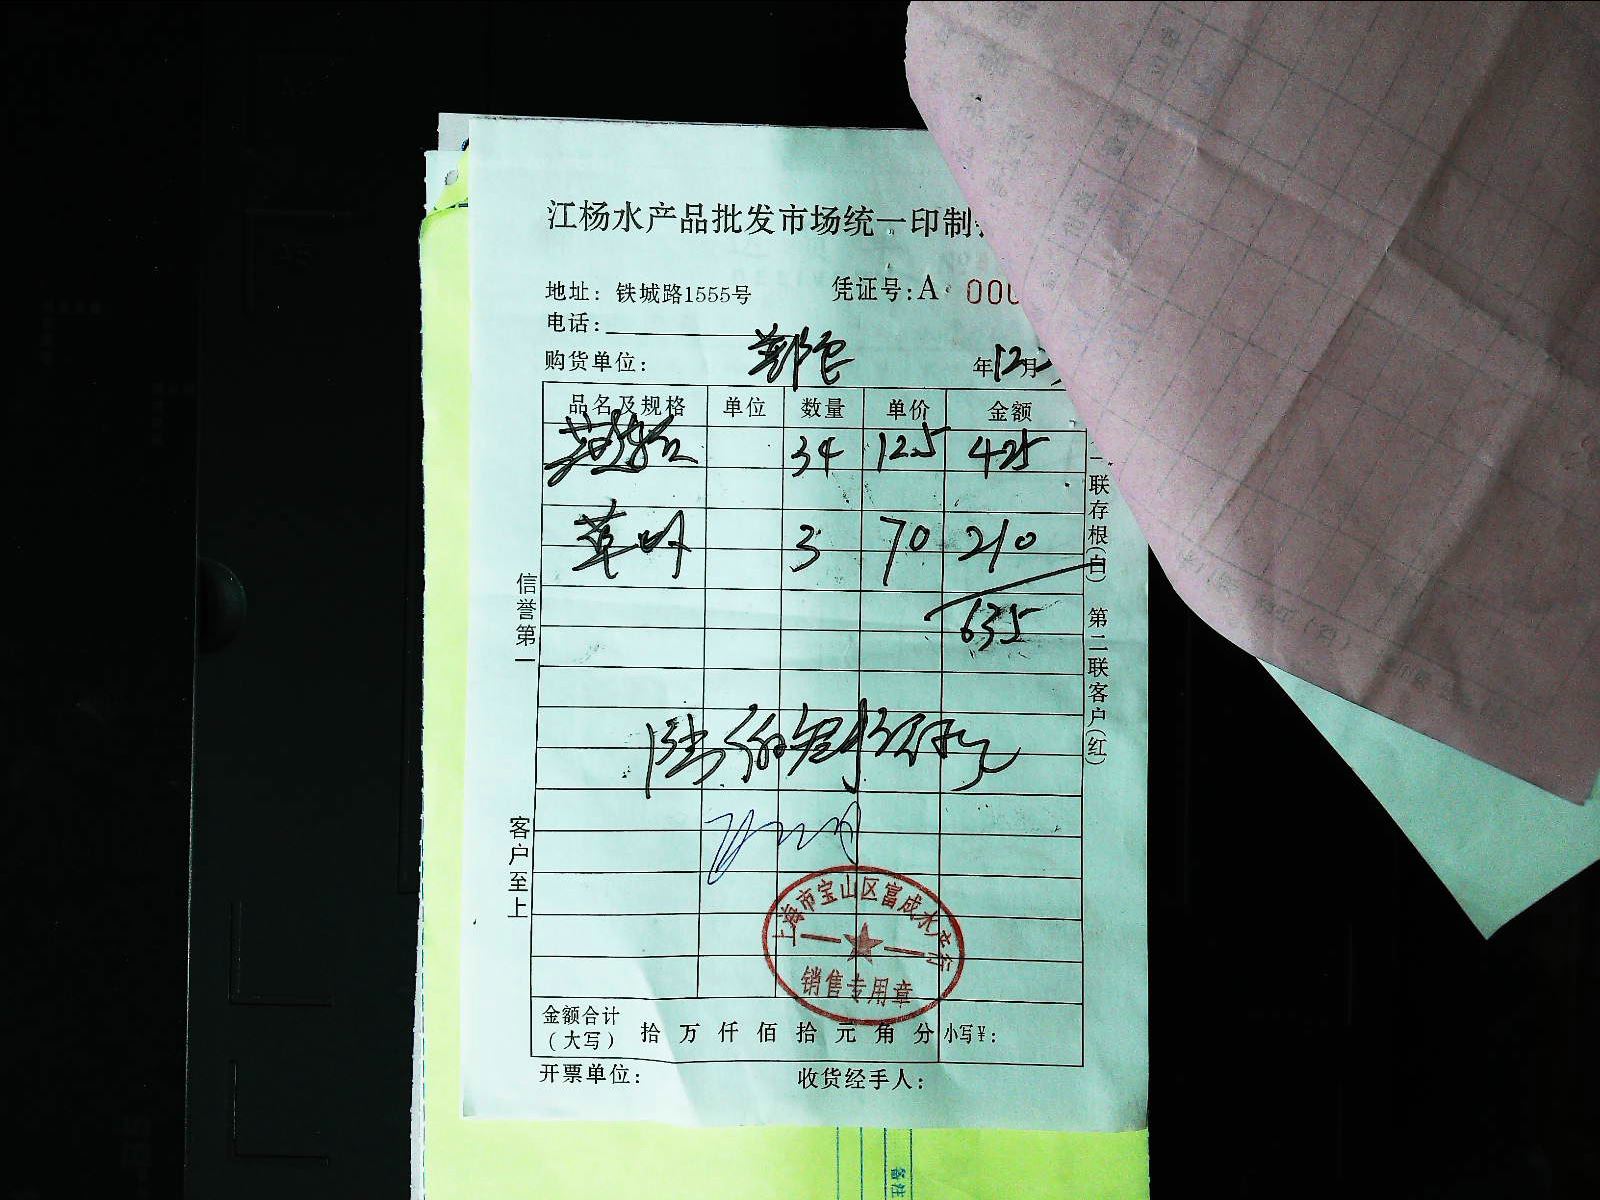 江杨水产品批发市场统一印制
地址：铁城路1555号
凭证号：A 000
电话：
购货单位：
年12月
品名及规格 单位 数量 单价 金额
34 12.5 425
草虾 3 70 210
635
陆佰叁拾伍元
信誉第一
客户至上
联存根(白) 第二联客户(红)
上海市宝山区富成水产行
销售专用章
金额合计
(大写) 拾 万 仟 佰 拾 元 角 分 小写¥：
开票单位：
收货经手人：
备注